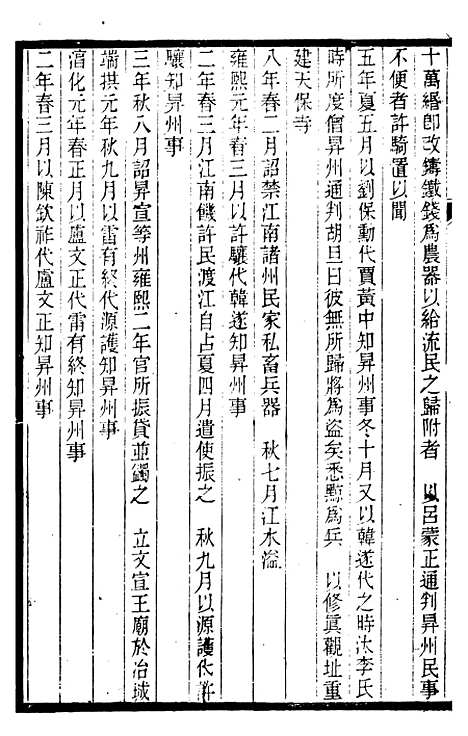 十萬緡卽改鑄鐵錢爲農器以給流民之歸附者　以呂蒙正通判昇州民事
不便者許騎置以聞
五年夏五月以劉保勳代賈黃中知昇州事冬十月又以韓遂代之時汰李氏
時所度僧昇州通判胡旦曰彼無所歸將爲盜矣悉黥爲兵　以修眞觀址重
建天保寺
八年春二月詔禁江南諸州民家私畜兵器　秋七月江水溢
雍熙元年春三月以許驤代韓遂知昇州事
二年春三月江南饑許民渡江自占夏四月遣使振之　秋九月以源護代許
驤知昇州事
三年秋八月詔昇宣等州雍熙二年官所振貸並蠲之　立文宣王廟於冶城
端拱元年秋九月以雷有終代源護知昇州事
淯化元年春正月以盧文正代雷有終知昇州事
二年春三月以陳欽祚代盧文正知昇州事